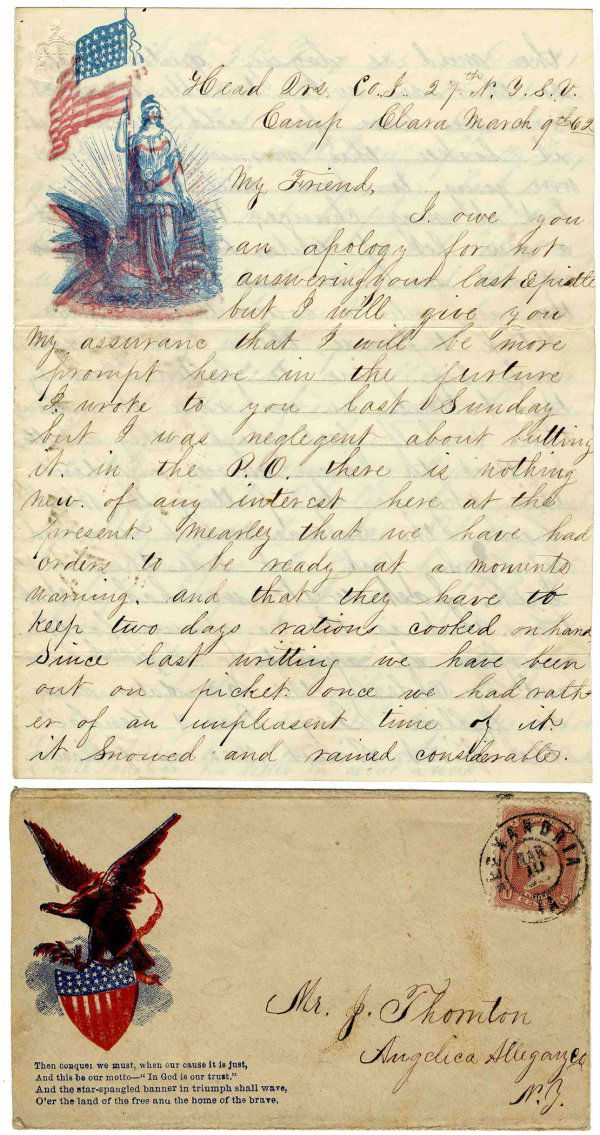 Head Qrs. Co. I. 27th N. Y. S. V.
Camp Clara March 9th 62
My Friend,
I owe you
an apology for not
answering your last Epistle
but I will give you
my assuranc that I will be more
prompt here in the furture
I wrote to you last Sunday
but I was neglegent about butting
it in the P.O. there is nothing
new of any interest here at the
present. mearley that we have had
orders to be ready at a moments
warning. and that they have to
keep two days rations cooked on hand
Since last writting we have been
out on picket once we had rath
er of an unpleasent time of it.
it snowed and rained considerable.
ALEXANDRIA
MAR
10
VA
Mr. J. Thornton
Angelica Allegany Co
N.Y.
Then conquer we must, when our cause it is just,
And this be our motto—"In God is our trust."
And the star-spangled banner in triumph shall wave,
O'er the land of the free and the home of the brave.